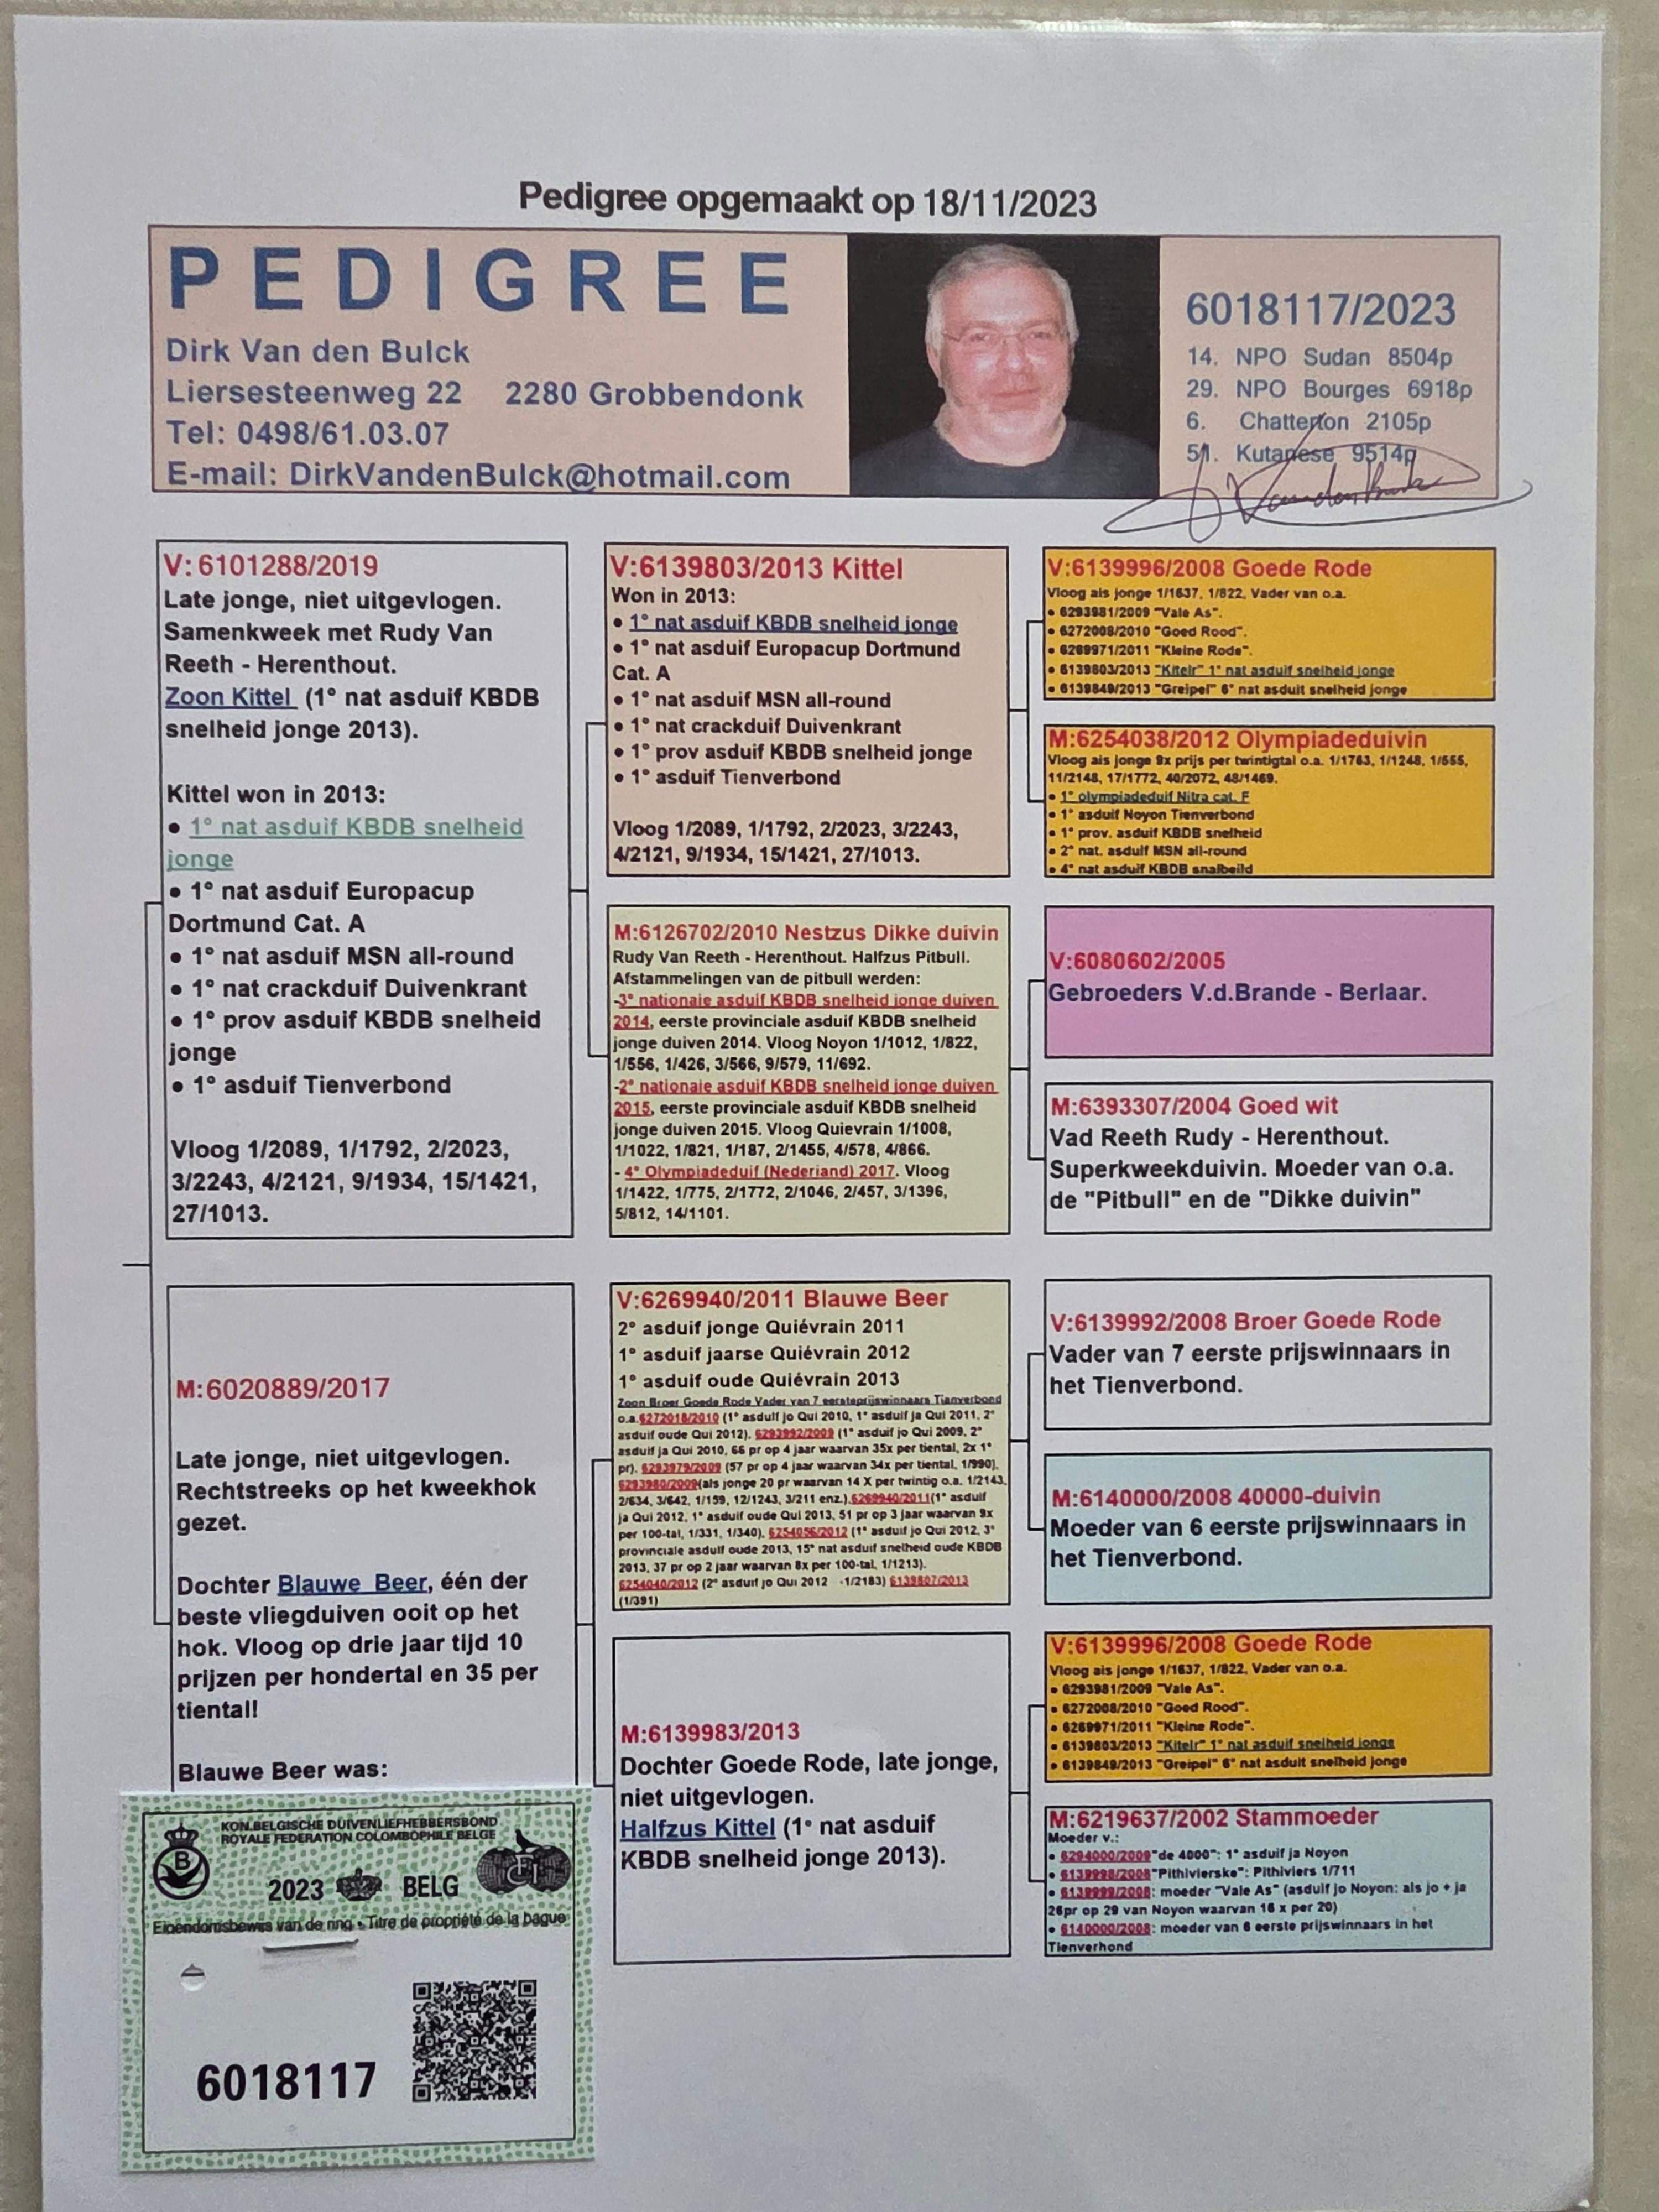 Pedigree opgemaakt op 18/11/2023
PEDIGREE
Dirk Van den Bulck
Liersesteenweg 22 2280 Grobbendonk
Tel: 0498/61.03.07
E-mail: DirkVandenBulck@hotmail.com
6018117/2023
14. NPO Sudan 8504p
29. NPO Bourges 6918p
6. Chatterton 2105p
51. Kutanese 9514p
V: 6101288/2019
Late jonge, niet uitgevlogen.
Samenkweek met Rudy Van
Reeth - Herenthout.
Zoon Kittel (1° nat asduif KBDB
snelheid jonge 2013).
Kittel won in 2013:
• 1° nat asduif KBDB snelheid
jonge
• 1° nat asduif Europacup
Dortmund Cat. A
• 1° nat asduif MSN all-round
• 1° nat crackduif Duivenkrant
• 1° prov asduif KBDB snelheid
jonge
• 1° asduif Tienverbond
Vloog 1/2089, 1/1792, 2/2023,
3/2243, 4/2121, 9/1934, 15/1421,
27/1013.
M:6020889/2017
Late jonge, niet uitgevlogen.
Rechtstreeks op het kweekhok
gezet.
Dochter Blauwe Beer, één der
beste vliegduiven ooit op het
hok. Vloog op drie jaar tijd 10
prijzen per hondertal en 35 per
tiental!
Blauwe Beer was:
V:6139803/2013 Kittel
Won in 2013:
• 1° nat asduif KBDB snelheid jonge
• 1° nat asduif Europacup Dortmund
Cat. A
• 1° nat asduif MSN all-round
• 1° nat crackduif Duivenkrant
• 1° prov asduif KBDB snelheid jonge
• 1° asduif Tienverbond
Vloog 1/2089, 1/1792, 2/2023, 3/2243,
4/2121, 9/1934, 15/1421, 27/1013.
M:6126702/2010 Nestzus Dikke duivin
Rudy Van Reeth - Herenthout. Halfzus Pitbull.
Afstammelingen van de pitbull werden:
-3° nationale asduif KBDB snelheid jonge duiven
2014, eerste provinciale asduif KBDB snelheid
jonge duiven 2014. Vloog Noyon 1/1012, 1/822,
1/556, 1/426, 3/566, 9/579, 11/692.
-2° nationale asduif KBDB snelheid jonge duiven
2015, eerste provinciale asduif KBDB snelheid
jonge duiven 2015. Vloog Quievrain 1/1008,
1/1022, 1/821, 1/187, 2/1455, 4/578, 4/866.
- 4° Olympiadeduif (Nederland) 2017. Vloog
1/1422, 1/775, 2/1772, 2/1046, 2/457, 3/1396,
5/812, 14/1101.
V:6269940/2011 Blauwe Beer
2° asduif jonge Quiévrain 2011
1° asduif jaarse Quiévrain 2012
1° asduif oude Quiévrain 2013
Zoon Broer Goede Rode Vader van 7 eersteprijswinnaars Tienverbond
o.a.6272018/2010 (1° asduif jo Qui 2010, 1° asduif ja Qui 2011, 2°
asduif oude Qui 2012), 6293992/2009 (1° asduif jo Qui 2009, 2°
asduif ja Qui 2010, 66 pr op 4 jaar waarvan 35x per tiental, 2x 1°
pr), 6293979/2009 (57 pr op 4 jaar waarvan 34x per tiental, 1/990),
6293980/2009(als jonge 20 pr waarvan 14 X per twintig o.a. 1/2143,
2/634, 3/642, 1/159, 12/1243, 3/211 enz.),6269940/2011(1° asduif
ja Qui 2012, 1° asduif oude Qui 2013, 51 pr op 3 jaar waarvan 9x
per 100-tal, 1/331, 1/340), 6254056/2012 (1° asduif jo Qui 2012, 3°
provinciale asduif oude 2013, 15° nat asduif snelheid oude KBDB
2013, 37 pr op 2 jaar waarvan 8x per 100-tal, 1/1213).
6254040/2012 (2° asduif jo Qui 2012 -1/2183) 6139807/2013
(1/391)
M:6139983/2013
Dochter Goede Rode, late jonge,
niet uitgevlogen.
Halfzus Kittel (1° nat asduif
KBDB snelheid jonge 2013).
V:6139996/2008 Goede Rode
Vloog als jonge 1/1637, 1/822, Vader van o.a.
• 6293981/2009 "Vale As".
• 6272008/2010 "Goed Rood".
• 6269971/2011 "Kleine Rode".
• 6139803/2013 "Kitelr" 1° nat asduif snelheid jonge
• 6139849/2013 "Greipel" 6° nat asduit snelheid jonge
M:6254038/2012 Olympiadeduivin
Vloog als jonge 9x prijs per twintigtal o.a. 1/1763, 1/1248, 1/555,
11/2148, 17/1772, 40/2072, 48/1469.
• 1° olympiadeduif Nitra cat. F
• 1° asduif Noyon Tienverbond
• 1° prov. asduif KBDB snelheid
• 2° nat. asduif MSN all-round
• 4° nat asduif KBDB snalbeild
V:6080602/2005
Gebroeders V.d.Brande - Berlaar.
M:6393307/2004 Goed wit
Vad Reeth Rudy - Herenthout.
Superkweekduivin. Moeder van o.a.
de "Pitbull" en de "Dikke duivin"
V:6139992/2008 Broer Goede Rode
Vader van 7 eerste prijswinnaars in
het Tienverbond.
M:6140000/2008 40000-duivin
Moeder van 6 eerste prijswinnaars in
het Tienverbond.
V:6139996/2008 Goede Rode
Vloog als jonge 1/1637, 1/822, Vader van o.a.
• 6293981/2009 "Vale As".
• 6272008/2010 "Goed Rood".
• 6269971/2011 "Kleine Rode".
• 6139803/2013 "Kitelr" 1° nat asduif snelheid jonge
• 6139849/2013 "Greipel" 6° nat asduit snelheid jonge
M:6219637/2002 Stammoeder
Moeder v.:
• 6294000/2009"de 4000": 1° asduif ja Noyon
• 6139998/2008"Pithivierske": Pithiviers 1/711
• 6139999/2008: moeder "Vale As" (asduif jo Noyon: als jo + ja
26pr op 29 van Noyon waarvan 16 x per 20)
• 6140000/2008: moeder van 6 eerste prijswinnaars in het
Tienverhond
KON.BELGISCHE DUIVENLIEFHEBBERSBOND
ROYALE FEDERATION COLOMBOPHILE BELGE
B
FCI
2023 BELG
Eigendomsbewijs van de ring • Titre de propriété de la bague
6018117